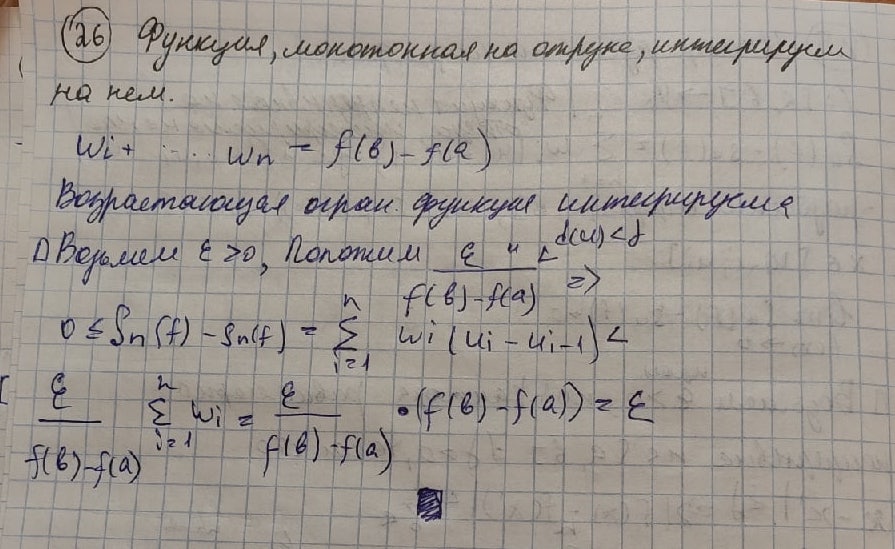 26 Функция, монотонная на отрезке, интегрируем
на нем.
Wi + ..... Wn = f(b) - f(a)
Возрастающая огран. функция интегрируема
Возьмем ε > 0, Положим ε / (f(b) - f(a)) d(u) < δ =>
0 ≤ Sn(f) - Sn(f) = n Σ i=1 Wi (Ui - Ui-1) <
ε / (f(b) - f(a)) n Σ i=1 Wi = ε / (f(b) - f(a)) • (f(b) - f(a)) = ε